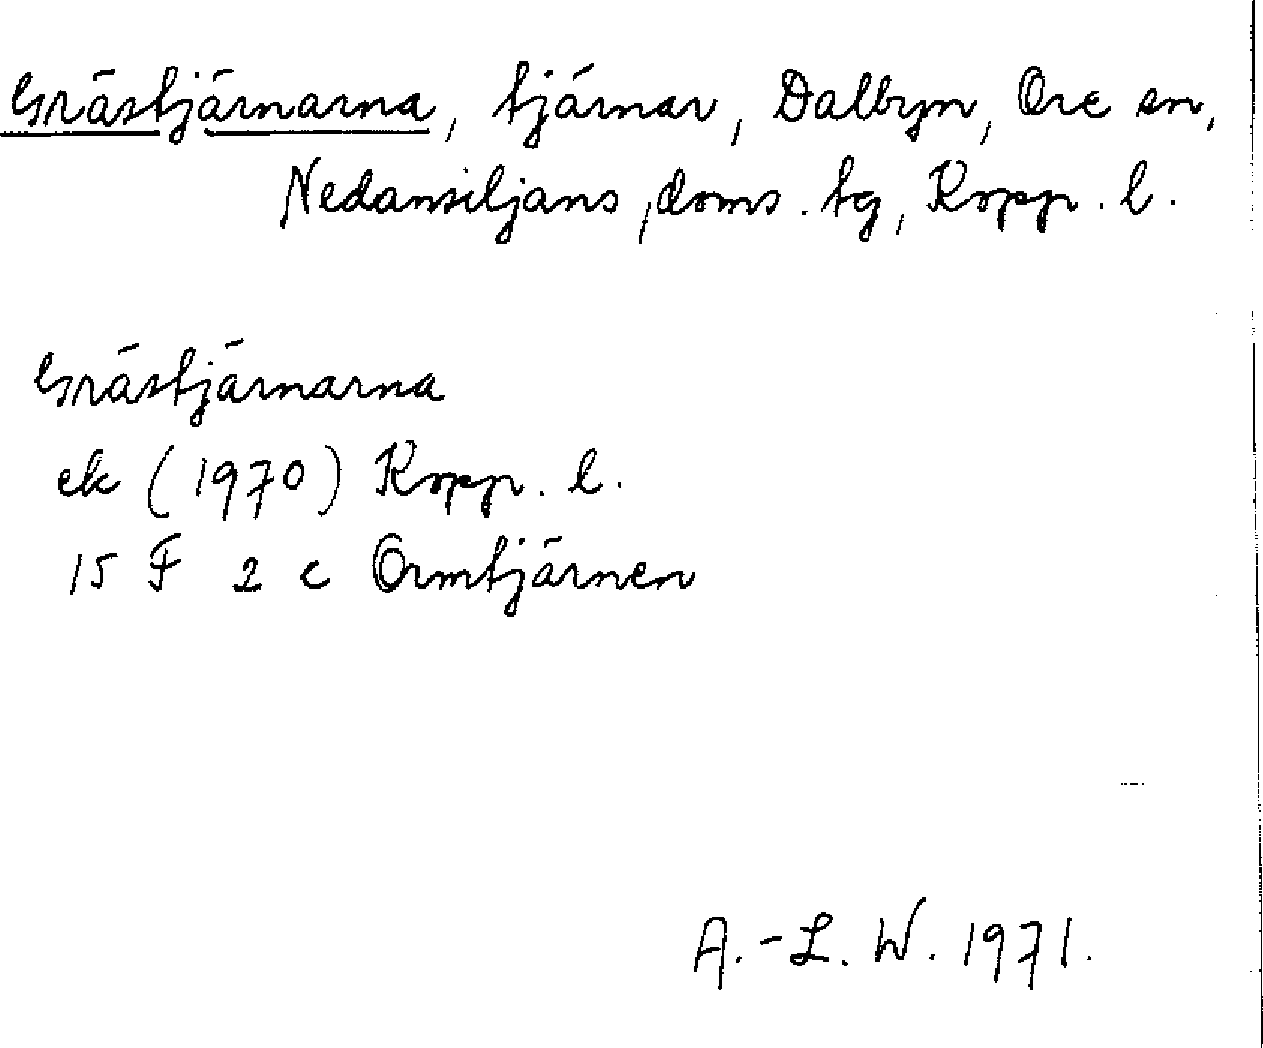 Grästjärnarna, tjärnar, Dalbyn, Ore sn,
Nedansiljans, doms. tg, Kopp. l.
Grästjärnarna
ek (1970) Kopp. l.
15 F 2 c Ormtjärnen
A.-L. W. 1971.